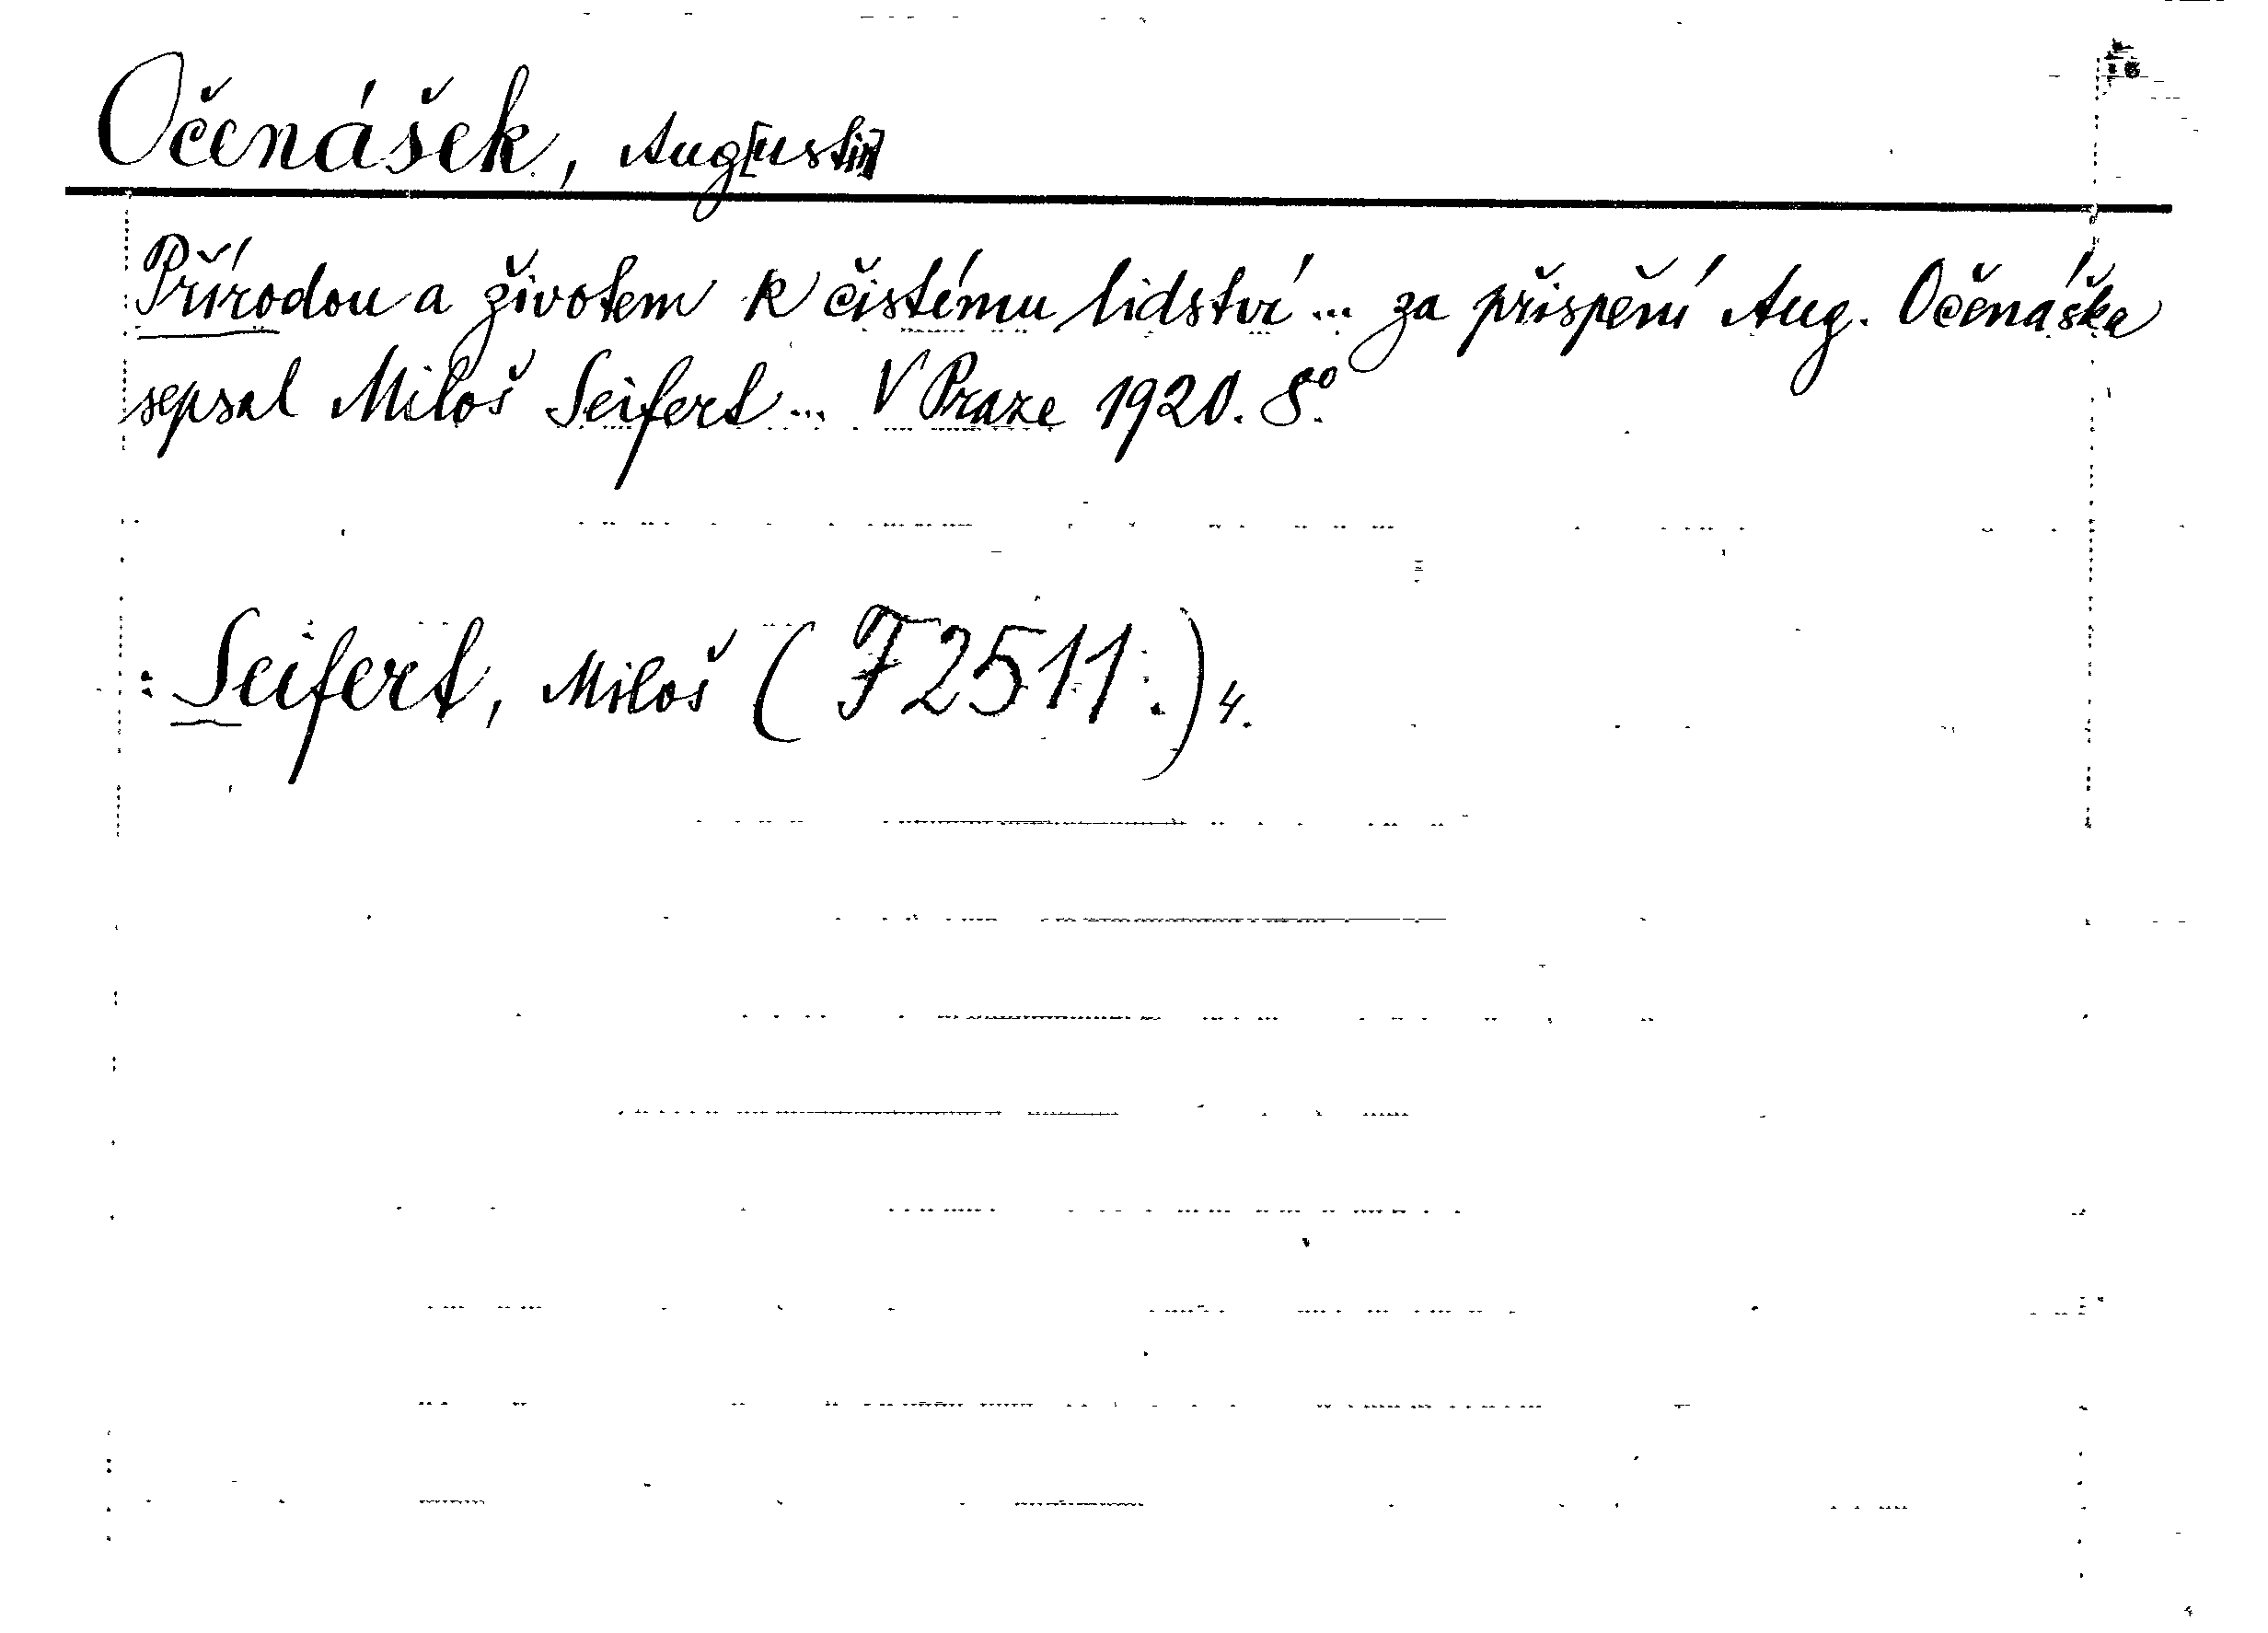 Očenášek, Aug[ustin]
Přírodou a životem k čistému lidství... za přispění Aug. Očenáška
sepsal Miloš Seifert... V Praze 1920. 8º.
: Seifert, Miloš (F 2511:) 4.